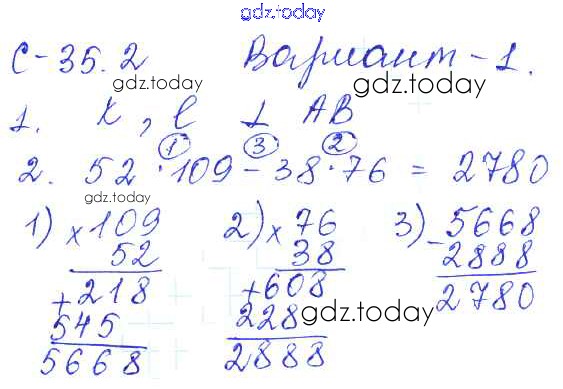 gdz.today
С-35.2 Вариант-1.
gdz.today
1. К, ℓ ⊥ АВ
① ③ ②
2. 52 · 109 - 38 · 76 = 2780
gdz.today
1) × 109 2) × 76 3) - 5668
52 38 2888
+ 218 + 608 2780
545 228 gdz.today
5668 2888